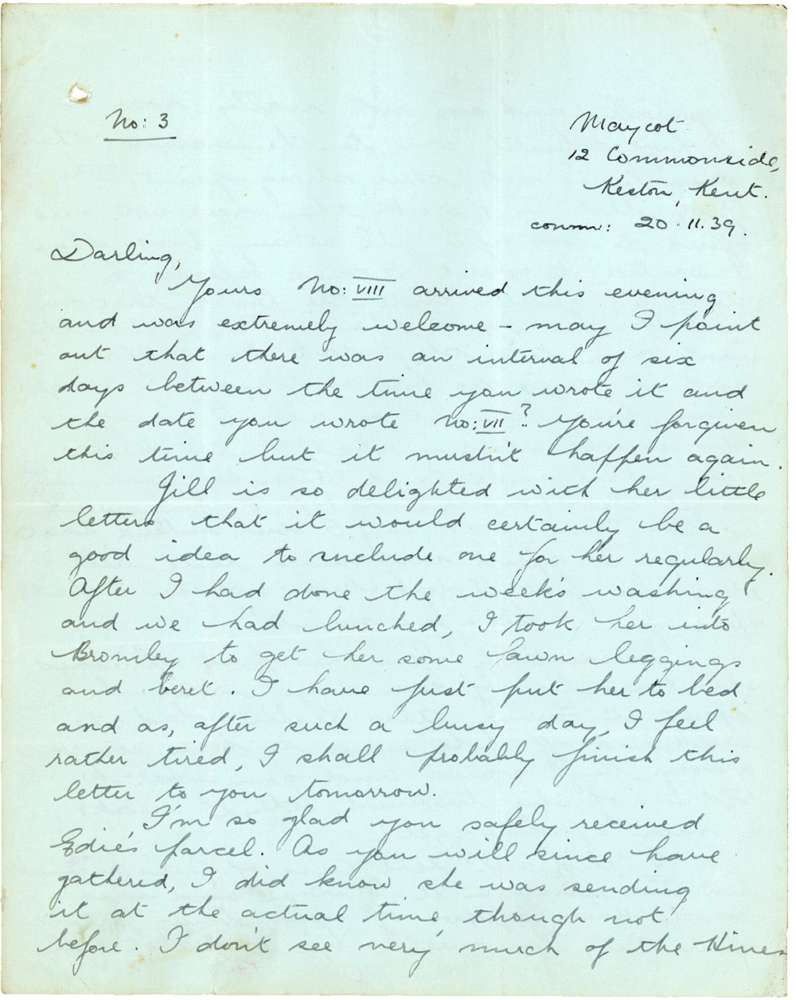 No: 3
Maycot
12 Commonside,
Keston, Kent.
comm: 20.11.39.
Darling,
Yours No: VIII arrived this evening
and was extremely welcome – may I point
out that there was an interval of six
days between the time you wrote it and
the date you wrote No: VII? You're forgiven
this time but it mustn't happen again.
Jill is so delighted with her little
letters that it would certainly be a
good idea to include one for her regularly.
After I had done the week's washing
and we had lunched, I took her into
Bromley to get her some fawn leggings
and beret. I have just put her to bed
and as, after such a busy day, I feel
rather tired, I shall probably finish this
letter to you tomorrow.
I'm so glad you safely received
Edie's parcel. As you will since have
gathered, I did know she was sending
it at the actual time though not
before. I don't see very much of the Hines